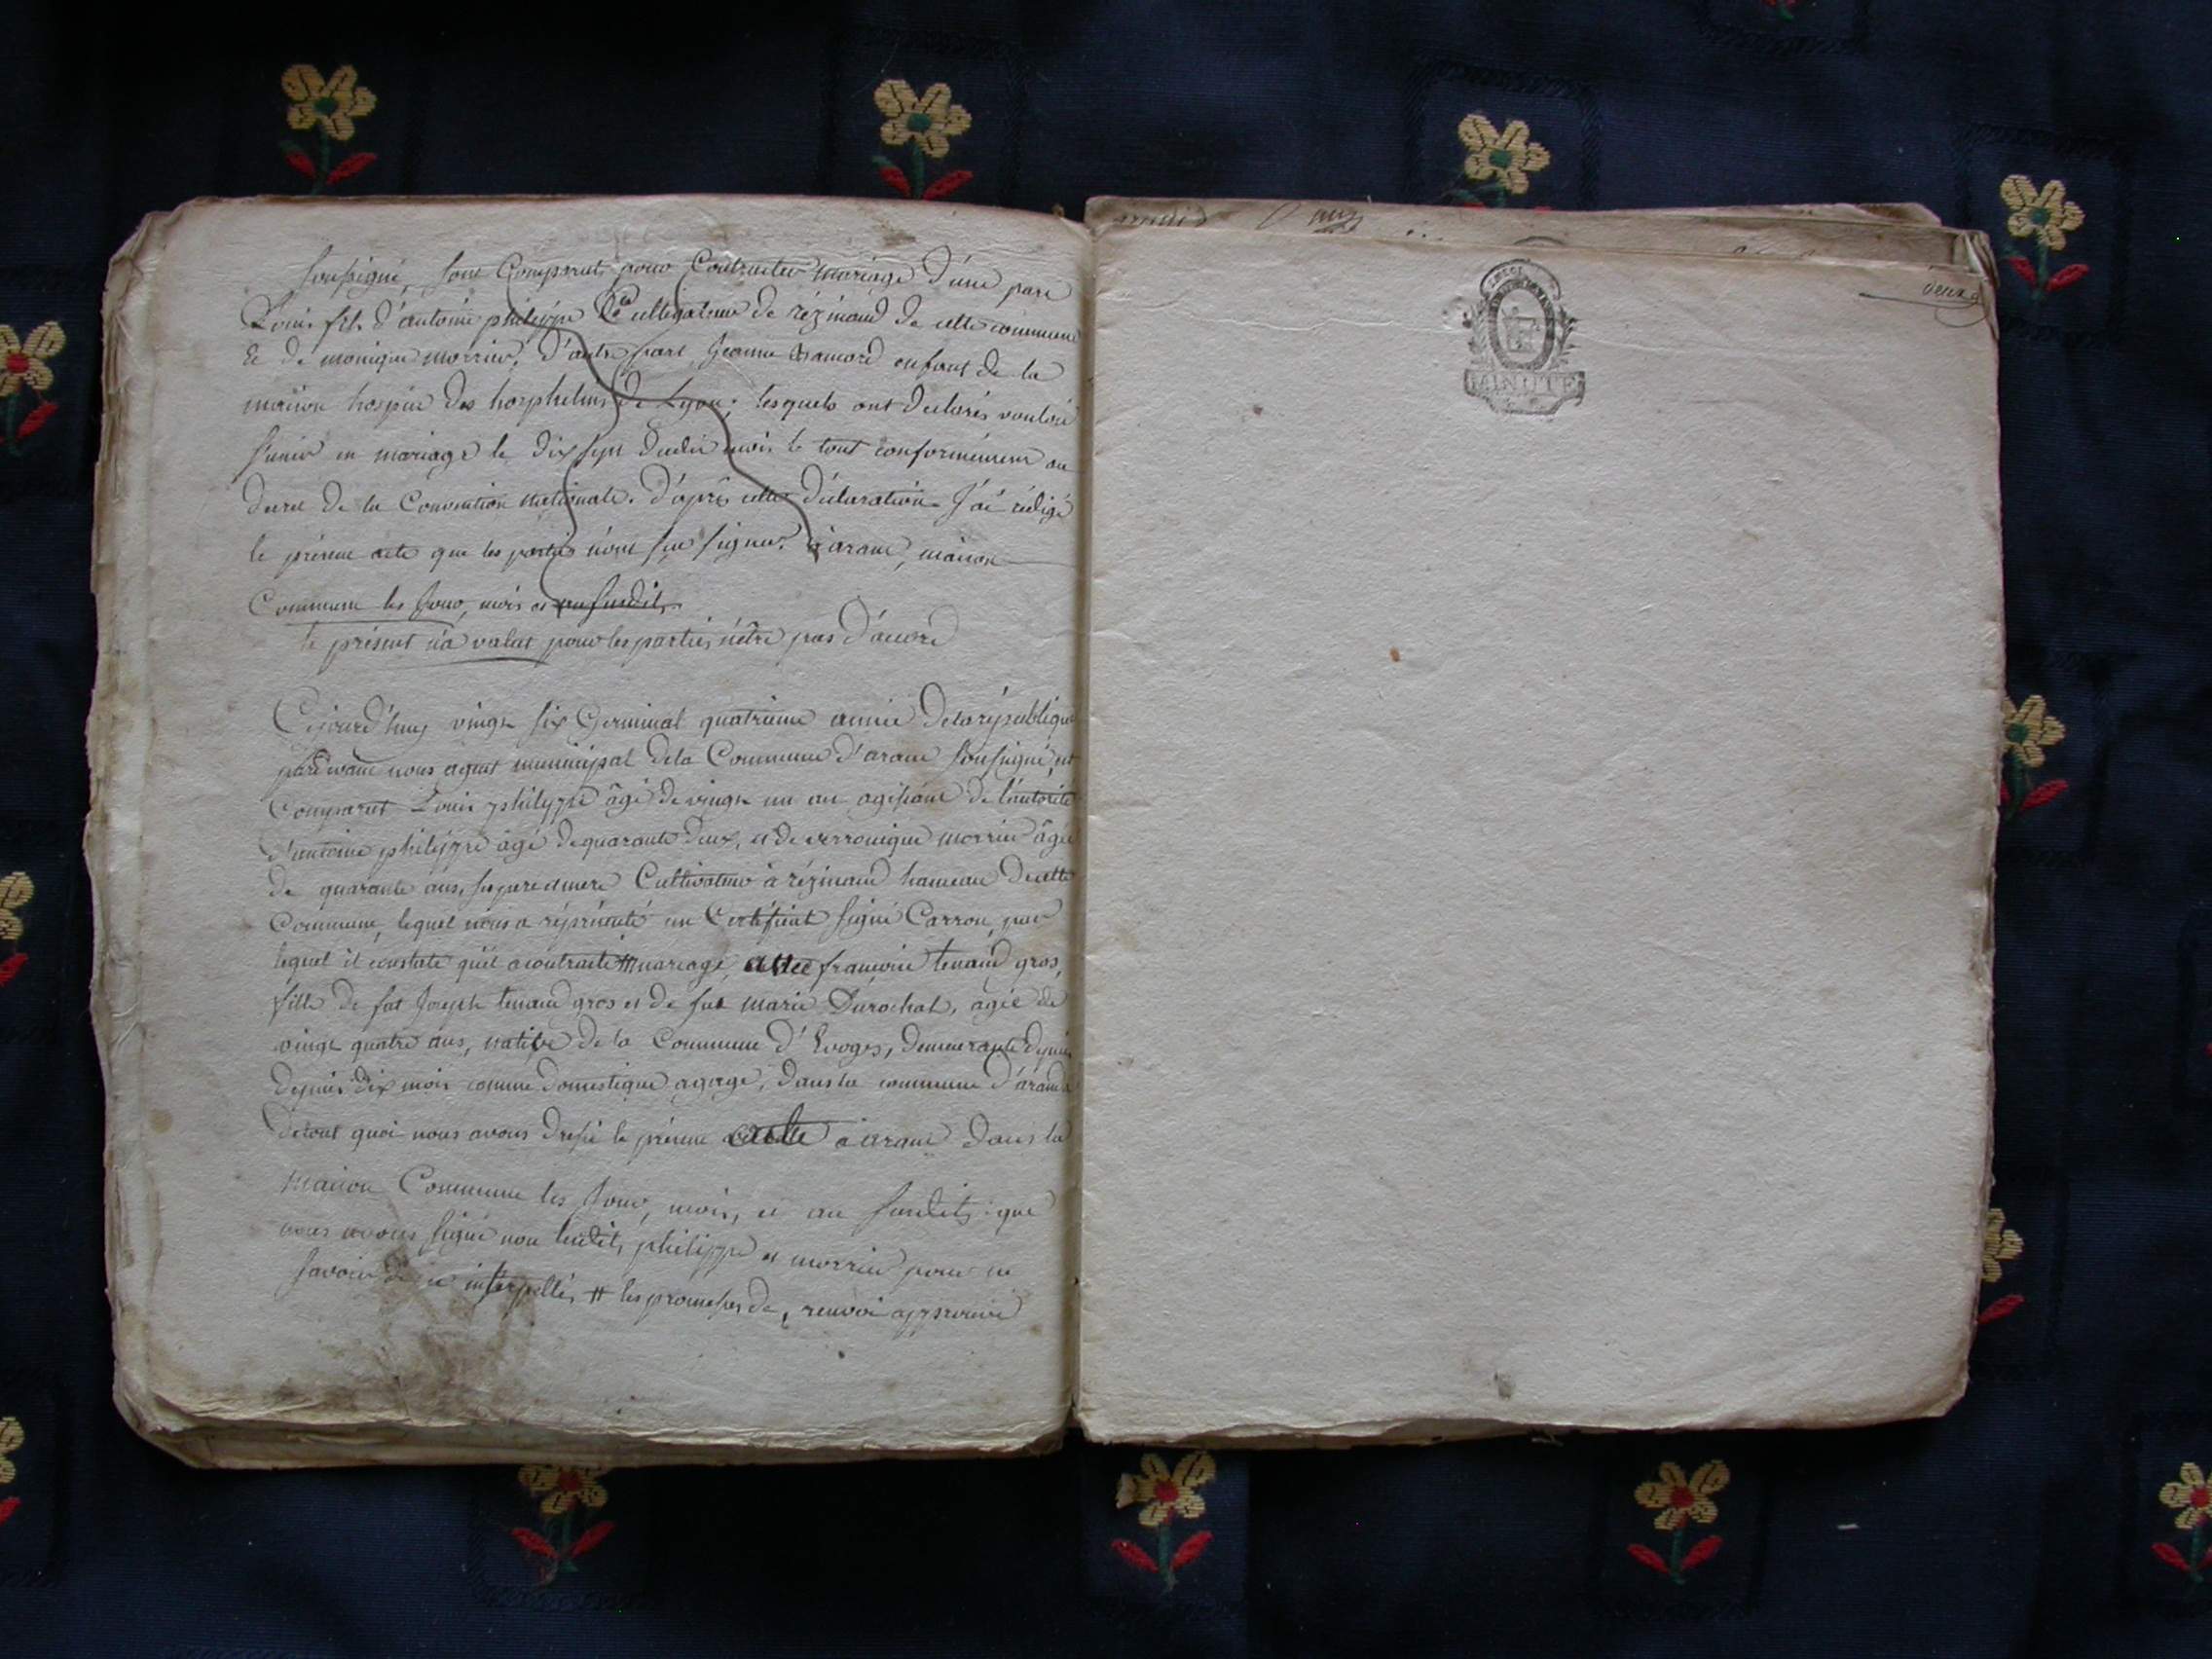 soussigné, sont Comparut pour Contracter mariage d'une part
Louis fils d'antoine philippe Cultivateur de rézinand de cette commune
Et de monique morrier, d'autre part Jeanne enfant de la
maison hospice des horphelins de Lyon; lesquels ont declarés vouloir
s'unir en mariage le dix sept dudit mois le tout conformément au
decret de la Convention nationale. d'après cette déclaration J'ai rédigé
le présent acte que les parties n'ont sçu signer. à aranc, maison
Commune les Jour, mois et an susdits.
le présent n'a valut pour les parties n'être pas d'accord
Cejourd'huy vingt six Germinal quatrieme année de la république
pardevant nous agent municipal de la Commune d'aranc soussigné, est
Comparut Louis philippe âgé de vingt un an agissant de l'autorité
d'antoine philippe âgé de quarante deux, et de verronique morrier âgée
de quarante ans, ses pere et mere Cultivateur à rézinand hameau de cette
Commune, lequel nous a réprésenté un Certificat signé Carron, par
lequel il constate qu'il a contracté # mariage, avec françoise tenand gros,
fille de fut Joseph tenand gros et de fut marie Durochat, agée de
vingt quatre ans, native de la Commune d'Evoges, demeurante depuis
depuis dix mois comme domestique agagé, dans la commune d'arandas
de tout quoi nous avons dressé le présent acte à aranc dans la
maison Commune les Jour, mois, et an susdits : que
nous avons signé non lesdits philippe et morrier pour ne
savoir de ce interpellés # les promesses de, renvoi approuvé
deux
MINUTE